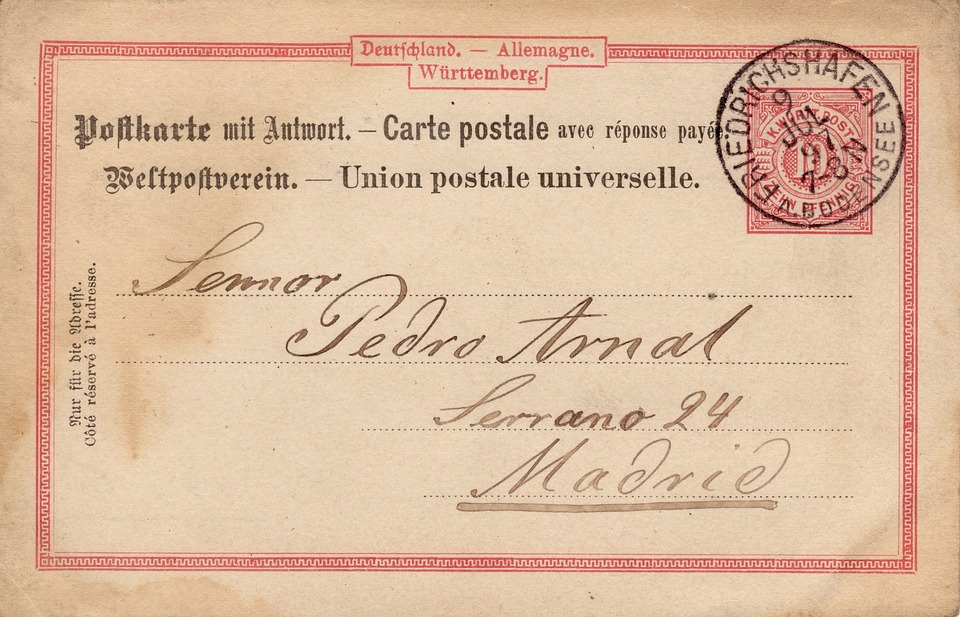 Deutschland. — Allemagne.
Württemberg.
Postkarte mit Antwort. — Carte postale avec réponse payé
Weltpostverein. — Union postale universelle.
FRIEDRICHSHAFEN
A. BODENSEE
K. WÜRTT. POST
ZEHN PFENNIG
Nur für die Adresse.
Côté réservé à l'adresse.
Sennor
Pedro Arnal
Serrano 24
Madrid